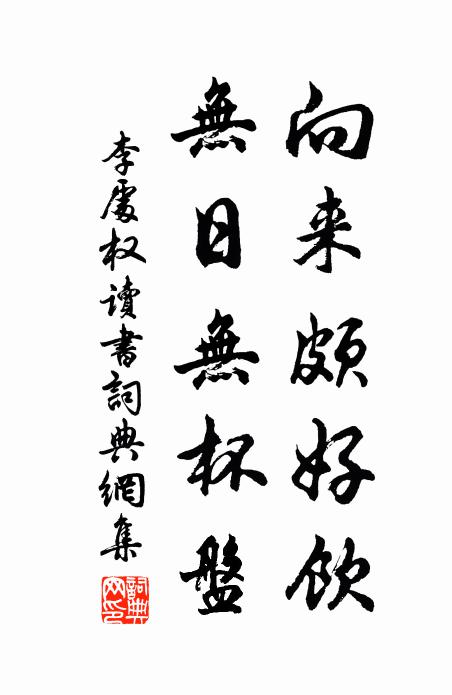 向来頗好飲
無日無杯盤
李處权讀書詞典網集
詞典網印